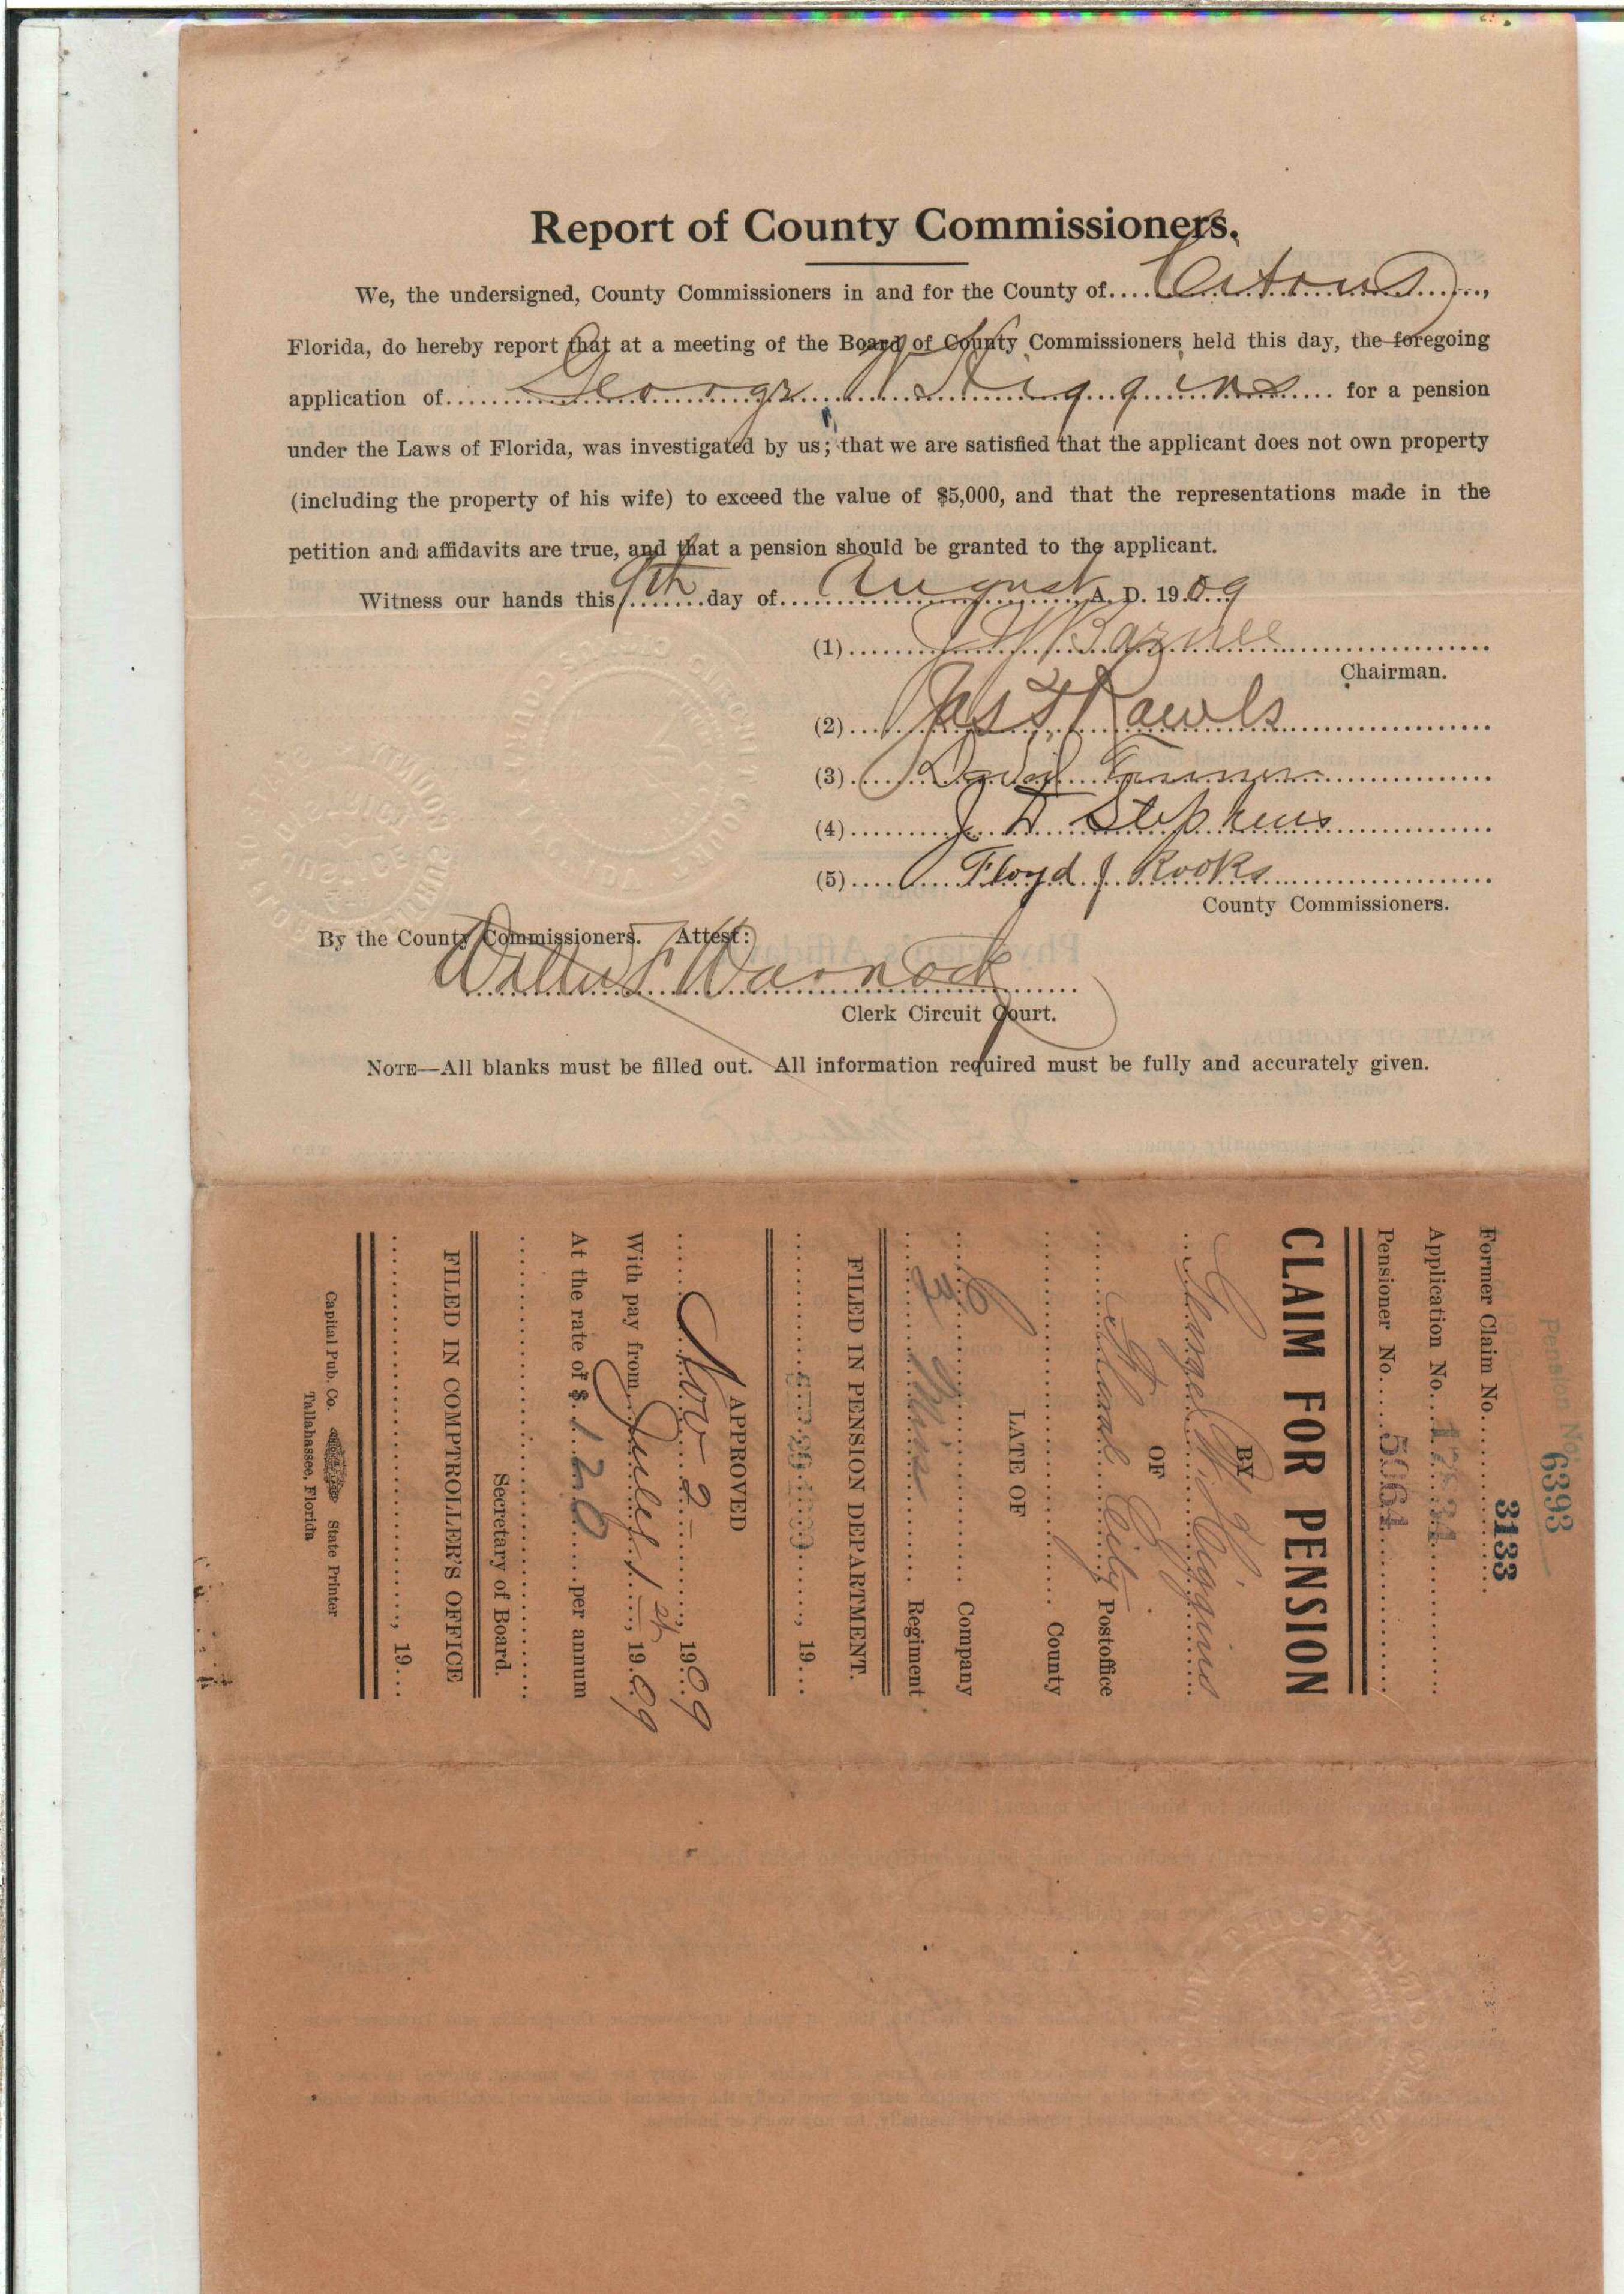 Report of County Commissioners.
We, the undersigned, County Commissioners in and for the County of Citrus,
Florida, do hereby report that at a meeting of the Board of County Commissioners held this day, the foregoing
application of George W. Higgins for a pension
under the Laws of Florida, was investigated by us; that we are satisfied that the applicant does not own property
(including the property of his wife) to exceed the value of $5,000, and that the representations made in the
petition and affidavits are true, and that a pension should be granted to the applicant.
Witness our hands this 9th day of August A. D. 1909
(1) Barnes
Chairman.
(2) Jas T. Rawls
(3) David
(4) J. Stephens
(5) Floyd J Rooks
County Commissioners.
By the County Commissioners. Attest:
Warnock
Clerk Circuit Court.
NOTE—All blanks must be filled out. All information required must be fully and accurately given.
Pension No. 6393
3133
Former Claim No.
Application No.
Pensioner No. 5064
CLAIM FOR PENSION
BY
George W. Higgins
OF
City Postoffice
County
LATE OF
Company
Regiment
FILED IN PENSION DEPARTMENT.
, 19
APPROVED
Nov 2 , 1909
With pay from July 1st, 1909
At the rate of $ 120 per annum
Secretary of Board.
FILED IN COMPTROLLER'S OFFICE
, 19
Capital Pub. Co. State Printer
Tallahassee, Florida